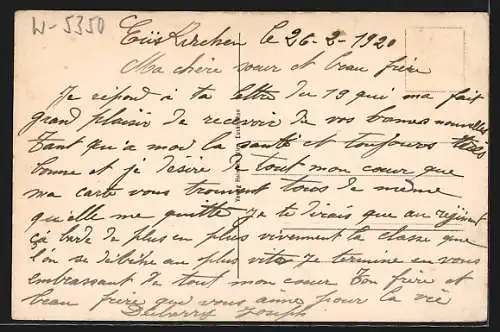 W-5350
Eüskirchen le 26-2-1920
Ma chère sœur et beau frère
Je répond à ta lettre du 19 qui ma fait
grand plaisir de recevoir de vos bonnes nouvelles
Tant qu'a moi la santé et toujours très
bonne et je désire de tout mon cœur que
ma carte vous trouvent tous de même
qu'elle me quitte Je te dirais que au régiment
ça barde de plus en plus vivement la classe que
l'on se débine au plus vite Je termine en vous
embrassant de tout mon cœur Ton frère et
beau frère que vous aime pour la vie
Debarry Joseph